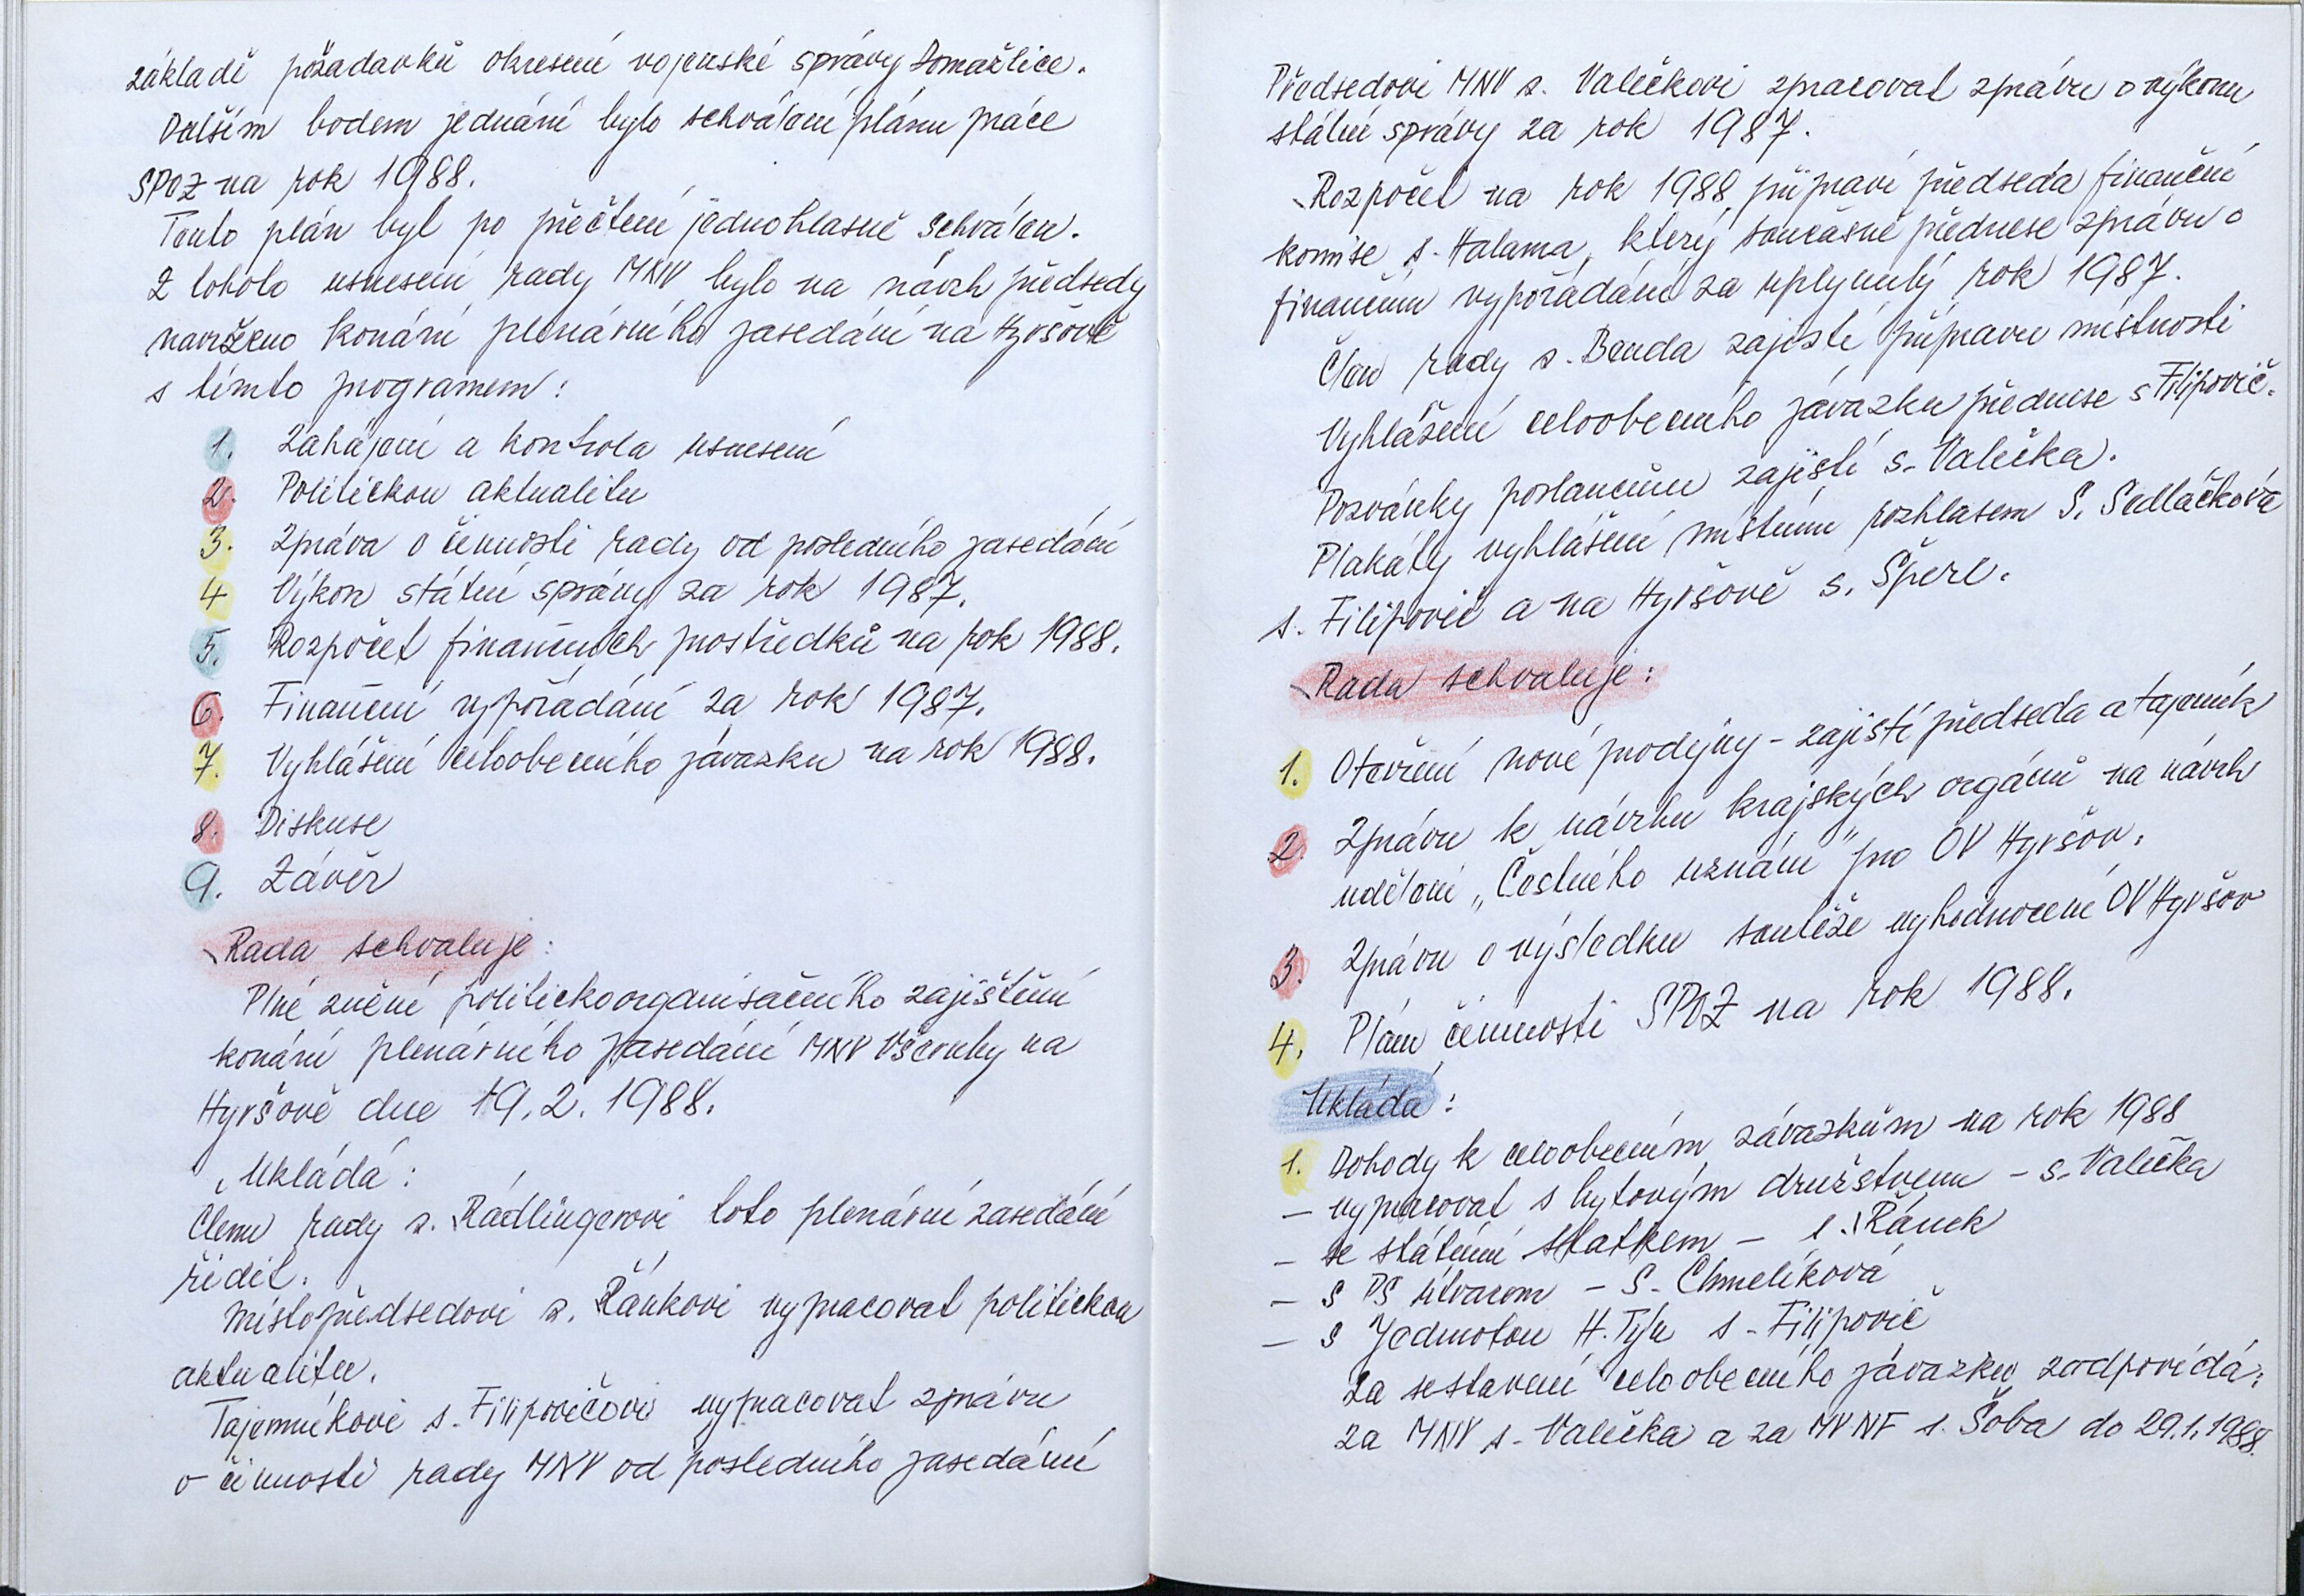 základě požadavků okresní vojenské správy Domažlice.
Dalším bodem jednání bylo schválení plánu práce
SPOZ na rok 1988.
Tento plán byl po přečtení jednohlasně schválen.
Z tohoto usnesení rady MNV bylo na návrh předsedy
navrženo konání plenárního zasedání na Hyršově
s tímto programem:
1. Zahájení a kontrola usnesení
2. Politickou aktualitu
3. Zpráva o činnosti rady od posledního zasedání
4 Výkon státní správy za rok 1987.
5. Rozpočet finančních prostředků na rok 1988.
6. Finanční vypořádání za rok 1987.
7. Vyhlášení celoobecního závazku na rok 1988.
8. Diskuse
9. Závěr
Rada schvaluje:
Plné znění politickoorganisačního zajištění
konání plenárního zasedání MNV Všeruby na
Hyršově dne 19.2.1988.
Ukládá:
Členu rady s. Rádlingerovi toto plenární zasedání
řídit.
Místopředsedovi s. Řánkovi vypracovat politickou
aktualitu.
Tajemníkovi s. Filipovičovi vypracovat zprávu
o činnosti rady MNV od posledního zasedání
Předsedovi MNV s. Valečkovi zpracovat zprávu o výkonu
státní správy za rok 1987.
Rozpočet na rok 1988 připraví předseda finanční
komise s. Halama, který současně přednese zprávu o
finančním vypořádání za uplynulý rok 1987.
Člen rady s. Benda zajistí přípravu místnosti
Vyhlášení celoobecního závazku přednese s Filipovič.
Pozvánky poslancům zajistí s. Valečka.
Plakáty vyhlášení místním rozhlasem S. Sedláčková
s. Filipovič a na Hyršově s. Šperl.
Rada schvaluje:
1. Otevření nové prodejny - zajistí předseda a tajemník
2. Zprávu k návrhu krajských orgánů na návrh
udělení „Čestného uznání" pro OV Hyršov.
3. Zprávu o výsledku soutěže vyhodnocení OV Hyršov
4. Plán činnosti SPOZ na rok 1988.
Ukládá:
1. Dohody k celoobecním závazkům na rok 1988
- vypracovat s bytovým družstvem - s. Valečka
- se státním statkem - s. Řánek
- s PS útvarem - S. Chmelíková
- s Jednotou H. Týn s - Filipovič
Za sestavení celoobecního závazku zodpovídá:
za MNV s. Valečka a za MV NF s. Šoba do 29.1.1988.